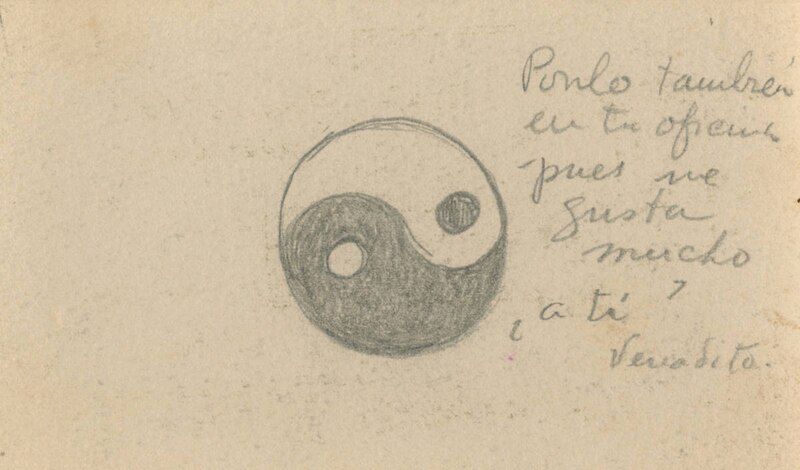 Ponlo también
en tu oficina
pues me
gusta
mucho
¿a ti?
Venadito.